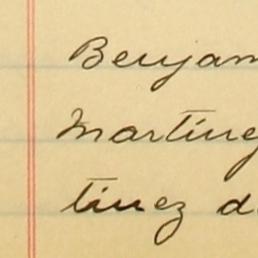 Benjam
Martine
tinez d